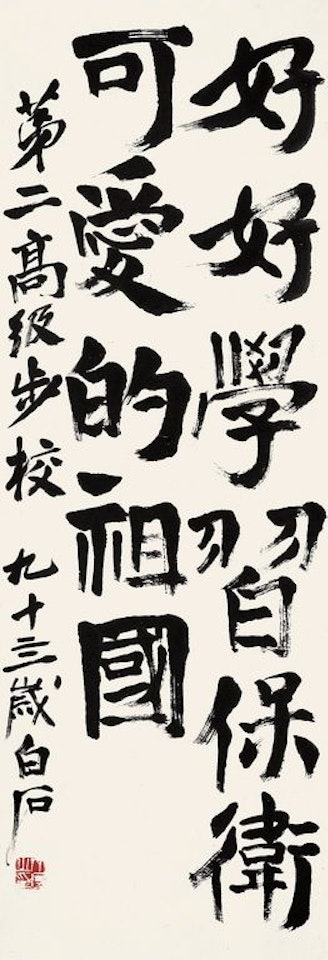 好好學習保衛
可愛的祖國
第二高级步校 九十三歲白石